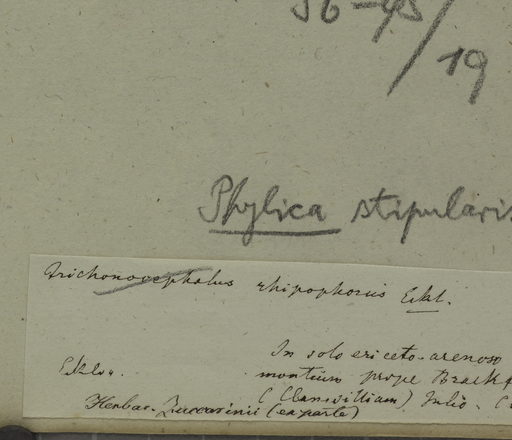 36-45/
19
Phylica stipularis
Trichonocephalus rhipophorus Eckl.
In solo ericeto-arenoso
Eklo.
montium prope Brackf
(Clanwilliam), Julio. (
Herbar. Zuccarinii (ex parte)